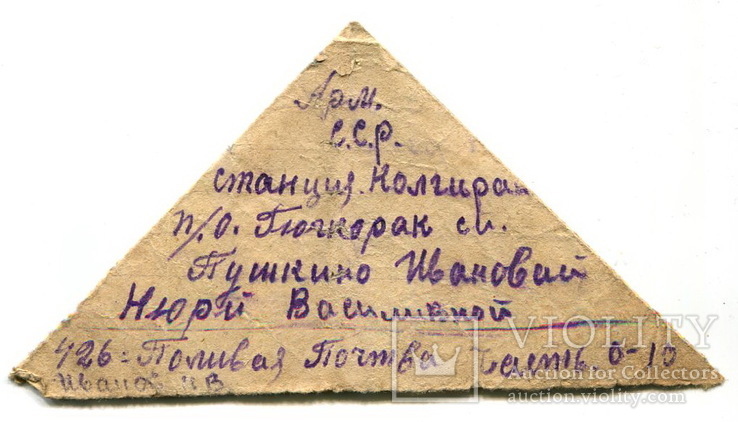 Арм.
С.С.Р.
станция. Колгира-
п/о. Гючкарак си.
Пушкино Ивановай
Нюрй Василивной
426-Поливая Почтва Часть. 6-10
Иванов И В
VIOLITY
Auction for Collectors
auction.violity.com